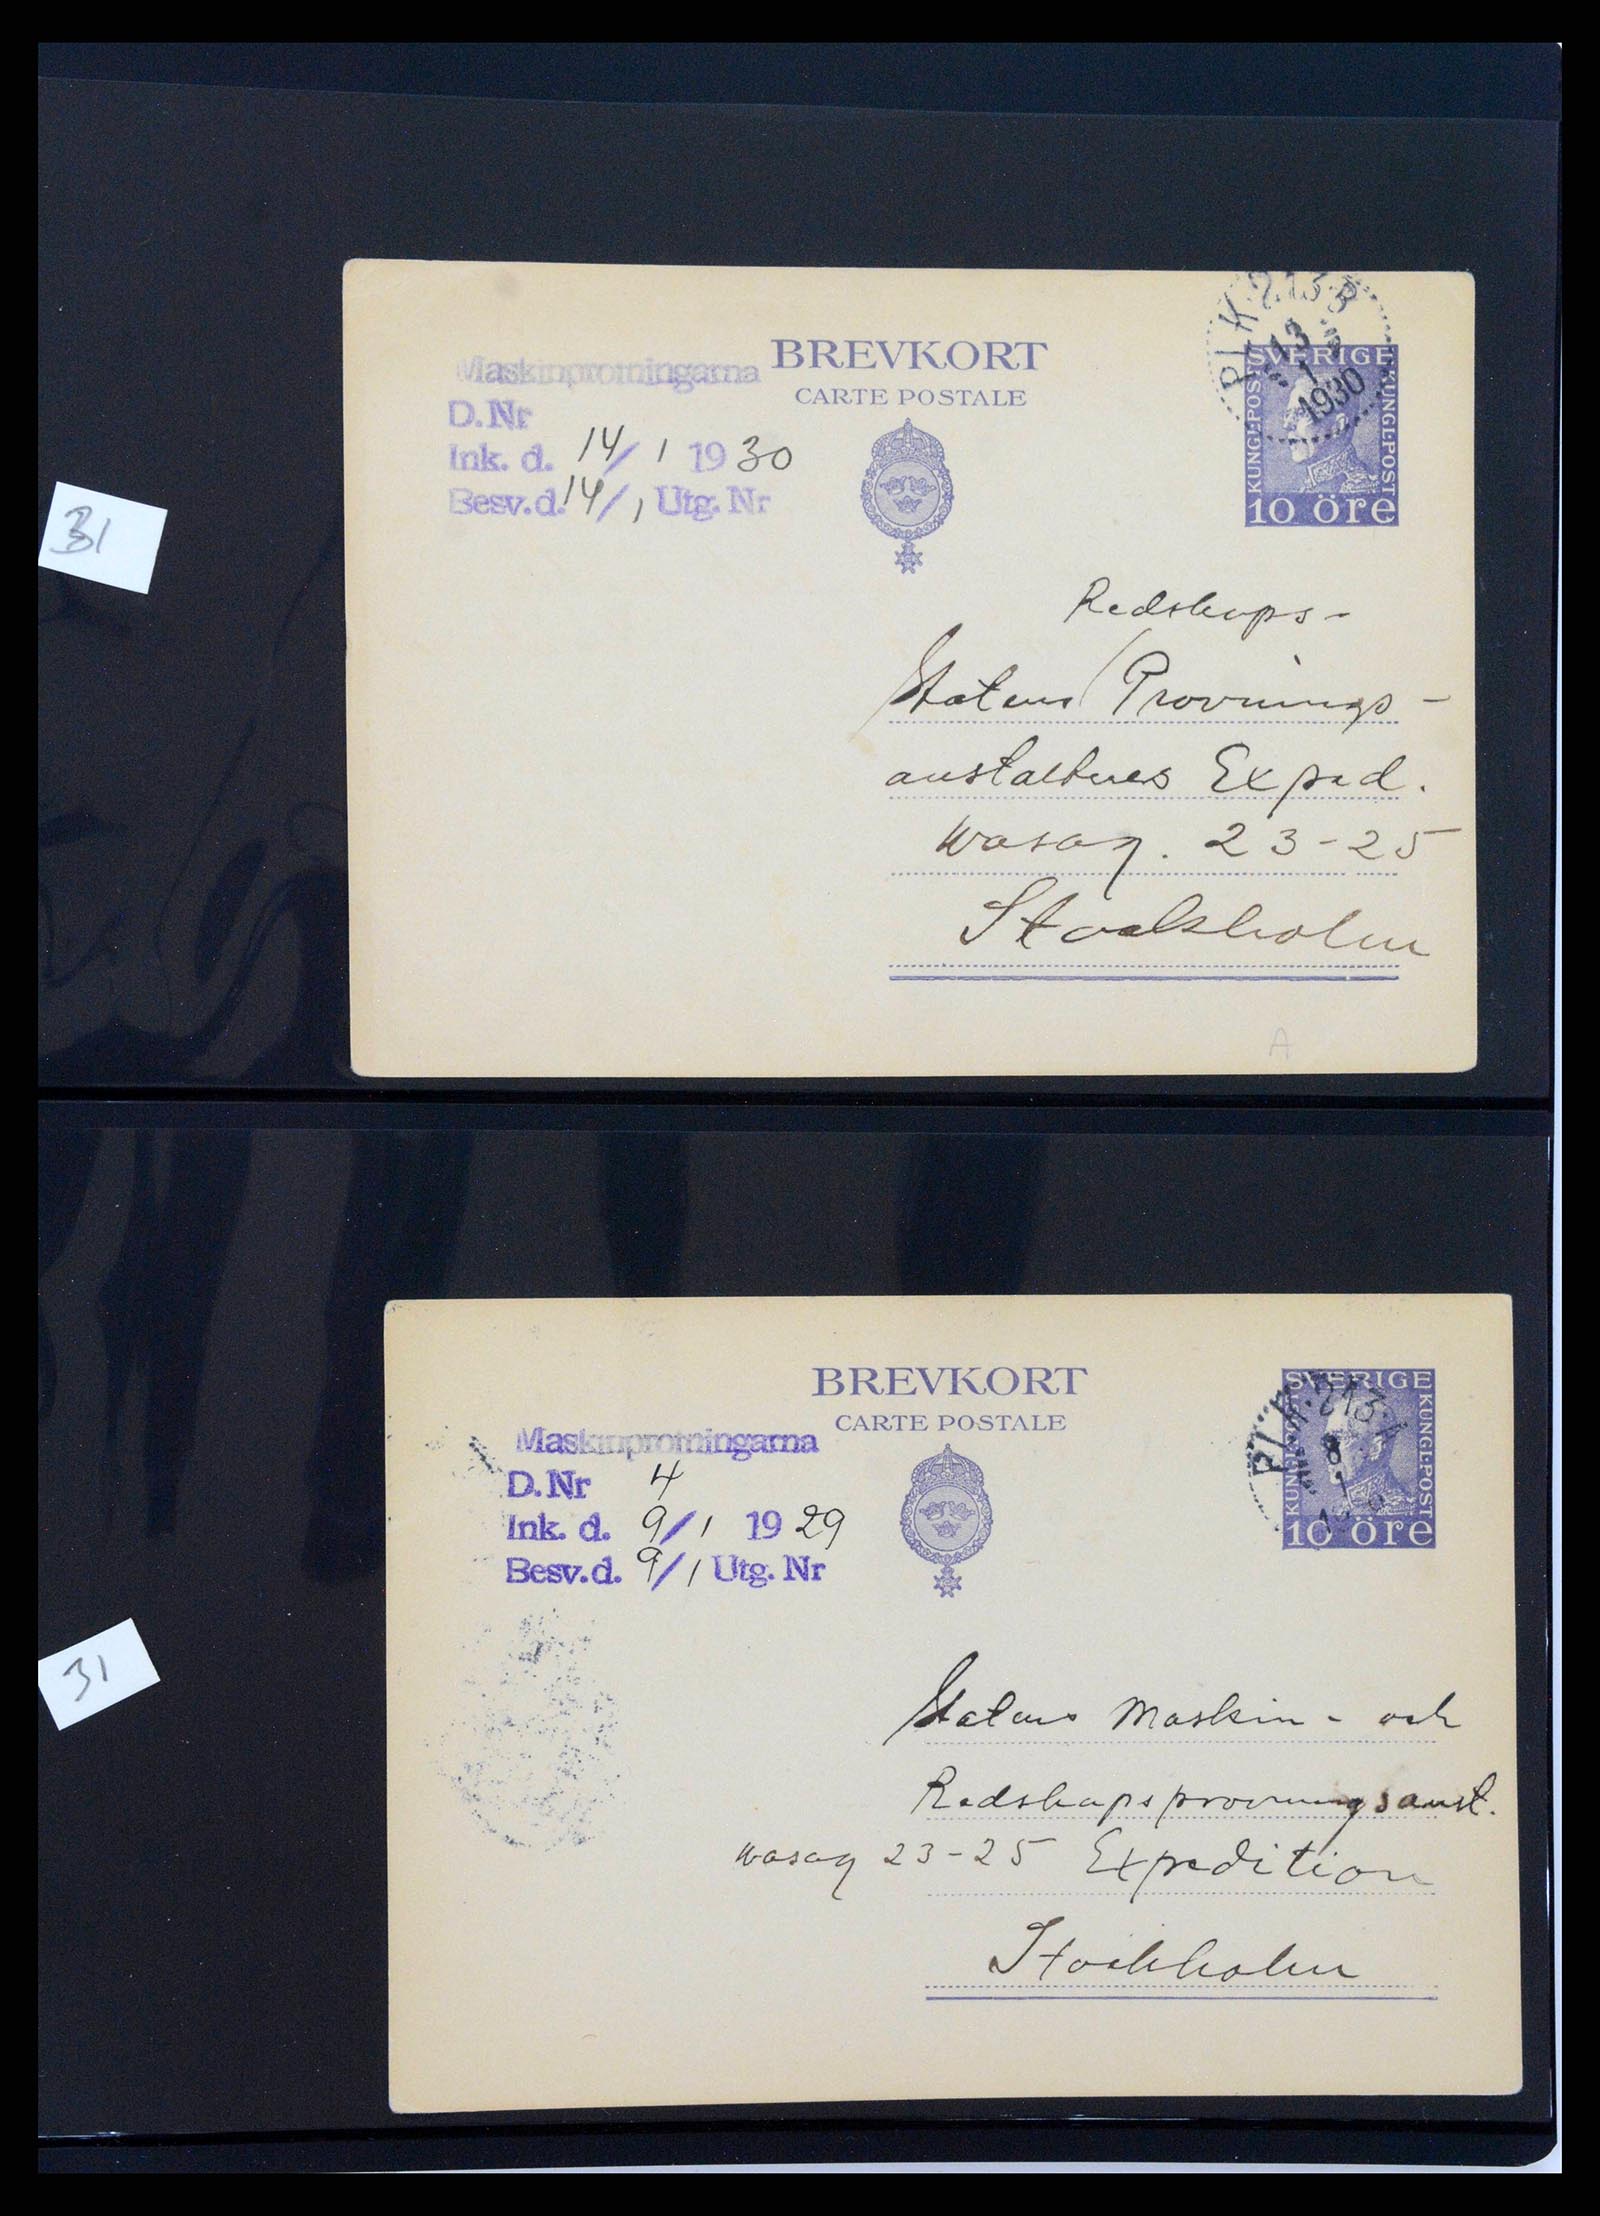 31
BREVKORT
CARTE POSTALE
Maskinprovningarna
D.Nr
Ink. d. 14/1 1930
Besv.d. 14/1 Utg. Nr
PLK 213 B
13
1
1930
SVERIGE
KUNGL·POST
KUNGL·POST
10 öre
Redskaps-
Statens Provnings-
anstaltens Exped.
Wasag. 23-25
Stockholm
A
31
BREVKORT
CARTE POSTALE
Maskinprovningarna
D.Nr 4
Ink. d. 9/1 1929
Besv.d. 9/1 Utg. Nr
PLK·213·A
8
1
SVERIGE
KUNGL·POST
KUNGL·POST
10 öre
Statens Maskin- och
Redskapsprovningsanst.
Wasag 23-25 Expedition
Stockholm